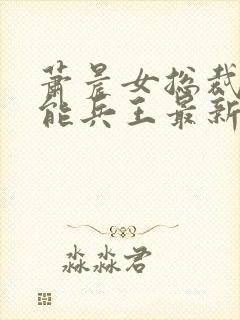 萧晨女总裁
能兵王最新
淼淼君